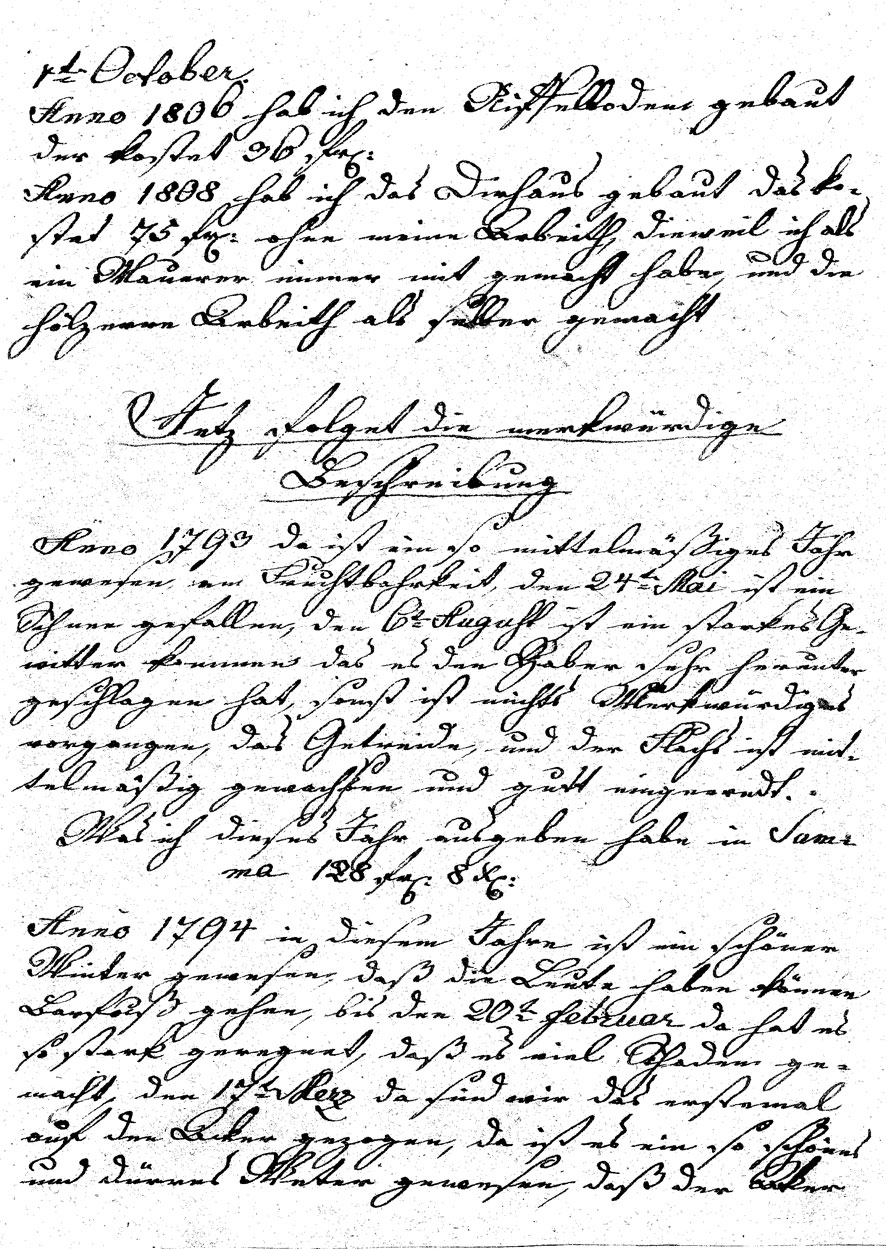 1t October.
Anno 1806 hab ich den Riffelboden gebaut
der kostet 36 frx:
Anno 1808 hab ich das Dirhaus gebaut das ko-
stet 75 fx: ohne meine Arbeith, dieweil ich als
ein Mauerer immer mit gemacht habe, und die
hölzerne Arbeith als selber gemacht
Jetz folget die merkwürdige
Beschreibung
Anno 1793 da ist ein so mittelmäßiges Jahr
gewesen, an Fruchtbahrkeit, den 24t Mai ist ein
Schnee gefallen, den 6t August ist ein starkes Ge-
witter kommen das es den Haber sehr herunter
geschlagen hat, sonst ist nichts Merkwürdiges
vorgangen, das Getreide, und der Flachs ist mit-
telmäßig gewachsen und gutt eingeerndt.
Was ich dieses Jahr ausgeben habe in Sum-
ma 128 frx: 8 x:
Anno 1794 in diesem Jahre ist ein schöner
Winter gewesen, daß die Leute haben können
Barfuß gehen, bis den 20t februar da hat es
so stark geregnet, daß es viel Schaden ge-
macht, den 17t Merz da sind wir das erstemal
auf den Aker gezogen, da ist es ein so schönes
und dürres Weter gewesen, daß der Aker